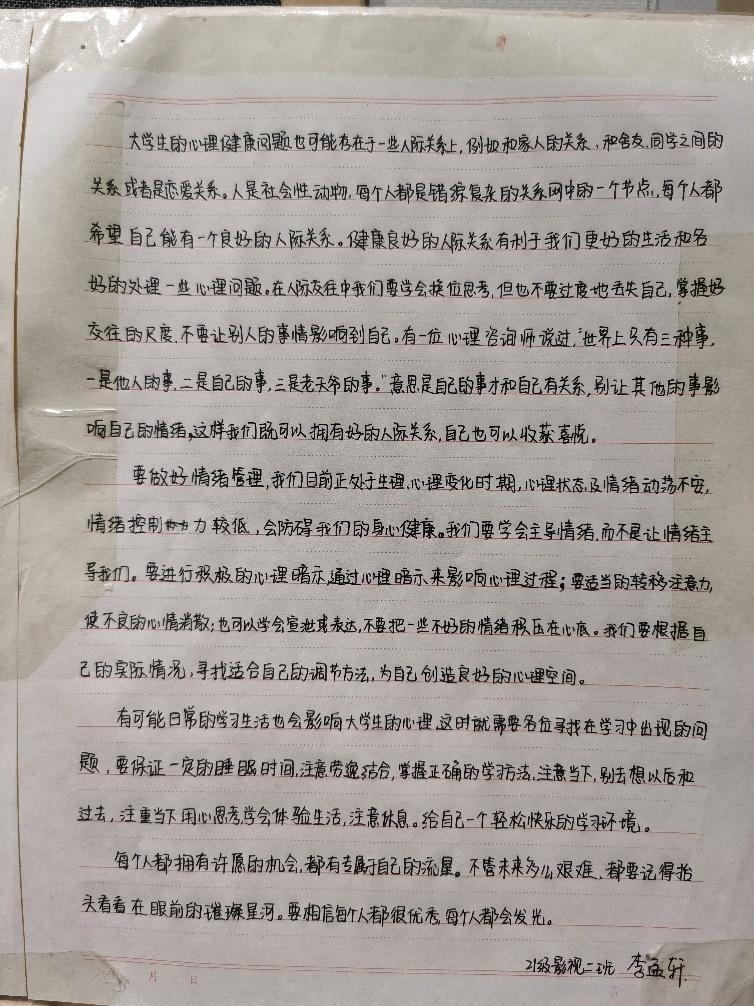 大学生的心理健康问题也可能存在于一些人际关系上，例如和家人的关系、和舍友、同学之间的
关系或者是恋爱关系。人是社会性动物，每个人都是错综复杂的关系网中的一个节点，每个人都
希望自己能有一个良好的人际关系。健康良好的人际关系有利于我们更好的生活和各
好的处理一些心理问题。在人际交往中我们要学会换位思考，但也不要过度地丢失自己，掌握好
交往的尺度，不要让别人的事情影响到自己。有一位心理咨询师说过，“世界上只有三种事，
一是他人的事，二是自己的事，三是老天爷的事。”意思是自己的事才和自己有关系，别让其他的事影
响自己的情绪，这样我们既可以拥有好的人际关系，自己也可以收获喜悦。
要做好情绪管理，我们目前正处于生理、心理变化时期，心理状态及情绪动荡不安，
情绪控制力较低，会防碍我们的身心健康。我们要学会主导情绪，而不是让情绪主
导我们。要进行积极的心理暗示，通过心理暗示来影响心理过程；要适当的转移注意力，
使不良的心情消散；也可以学会宣泄或表达，不要把一些不好的情绪积压在心底。我们要根据自
己的实际情况，寻找适合自己的调节方法，为自己创造良好的心理空间。
有可能日常的学习生活也会影响大学生的心理，这时就需要各位寻找在学习中出现的问
题，要保证一定的睡眠时间，注意劳逸结合，掌握正确的学习方法，注意当下，别去想以后和
过去，注重当下用心思考，学会体验生活，注意休息。给自己一个轻松快乐的学习环境。
每个人都拥有许愿的机会，都有专属于自己的流星。不管未来多么艰难，都要记得抬
头看看在眼前的璀璨星河。要相信每个人都很优秀，每个人都会发光。
21级影视二班 李孟轩
月 日